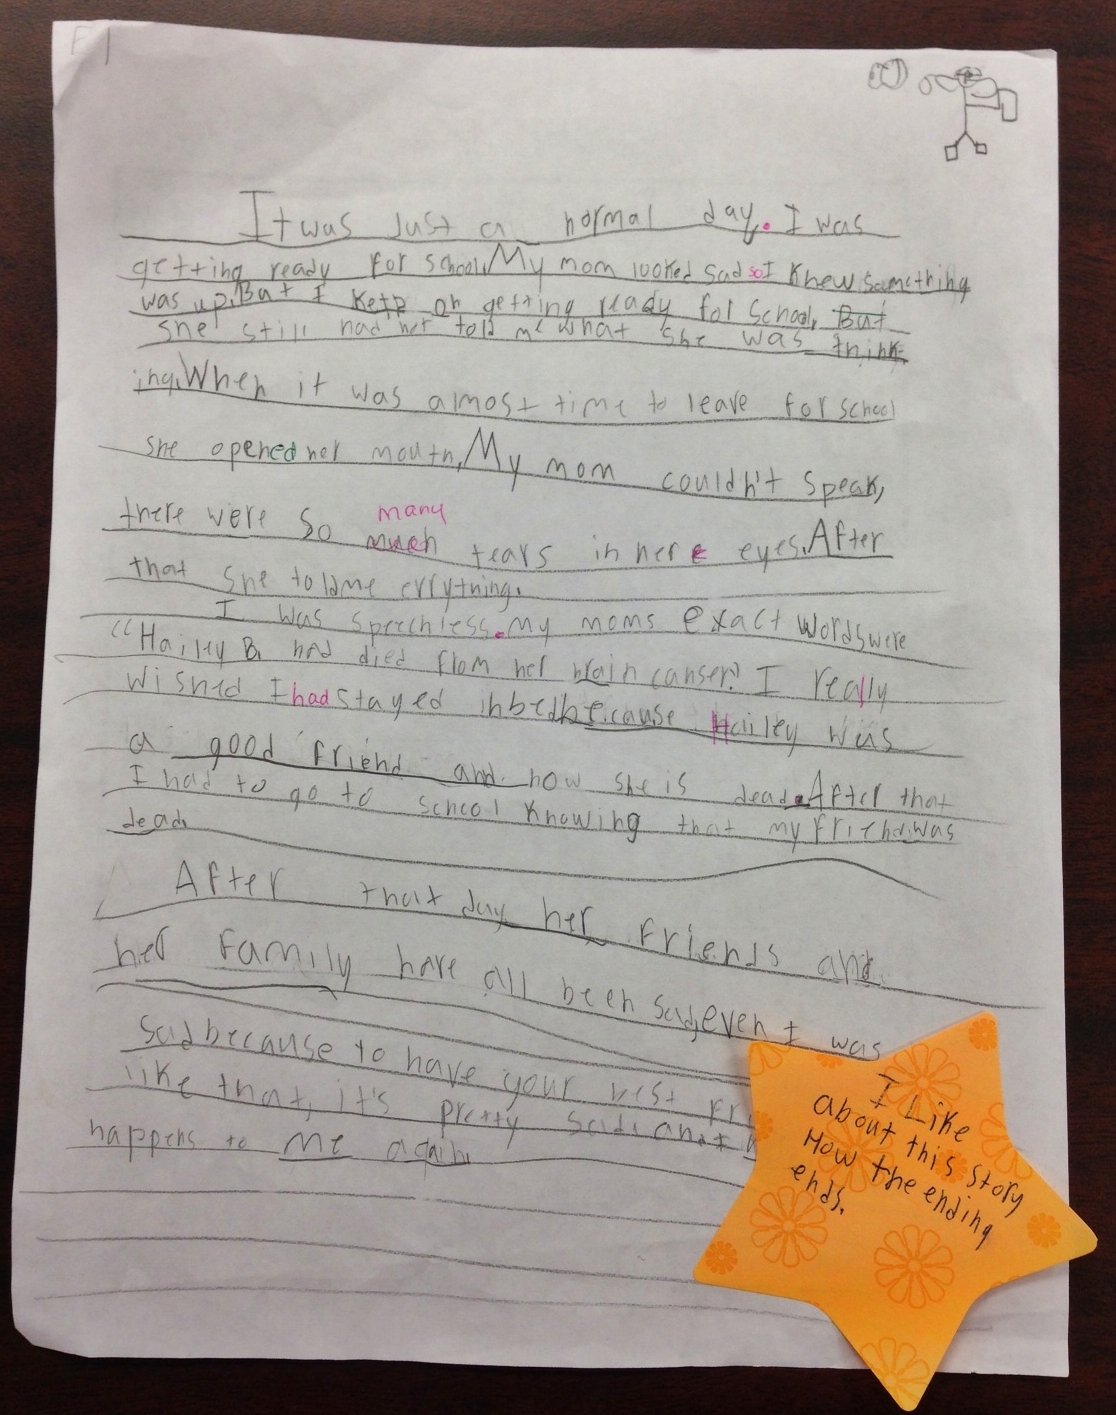 It was Just a normal day. I was
getting ready for school. My mom looked sad so I knew something
was up. But I Ketp on getting ready for School. But
she still had not told me what she was think
ing. When it was almost time to leave for school
she opened her mouth. My mom couldn't speak,
many
there were So much tears in here eyes. After
that she told me erything.
I was speechless. my moms exact words were
"Hailey B. had died from her brain canser." I really
wished I had stayed in bed because Hailey was
a good friend and now she is dead. After that
I had to go to school Knowing that my friend was
dead.
After that day her friends and
her Family have all been sad, even I was
sad because to have your best fri
like that, it's pretty sad. and
happens to me again.
I Like
about this story
How the ending
ends.